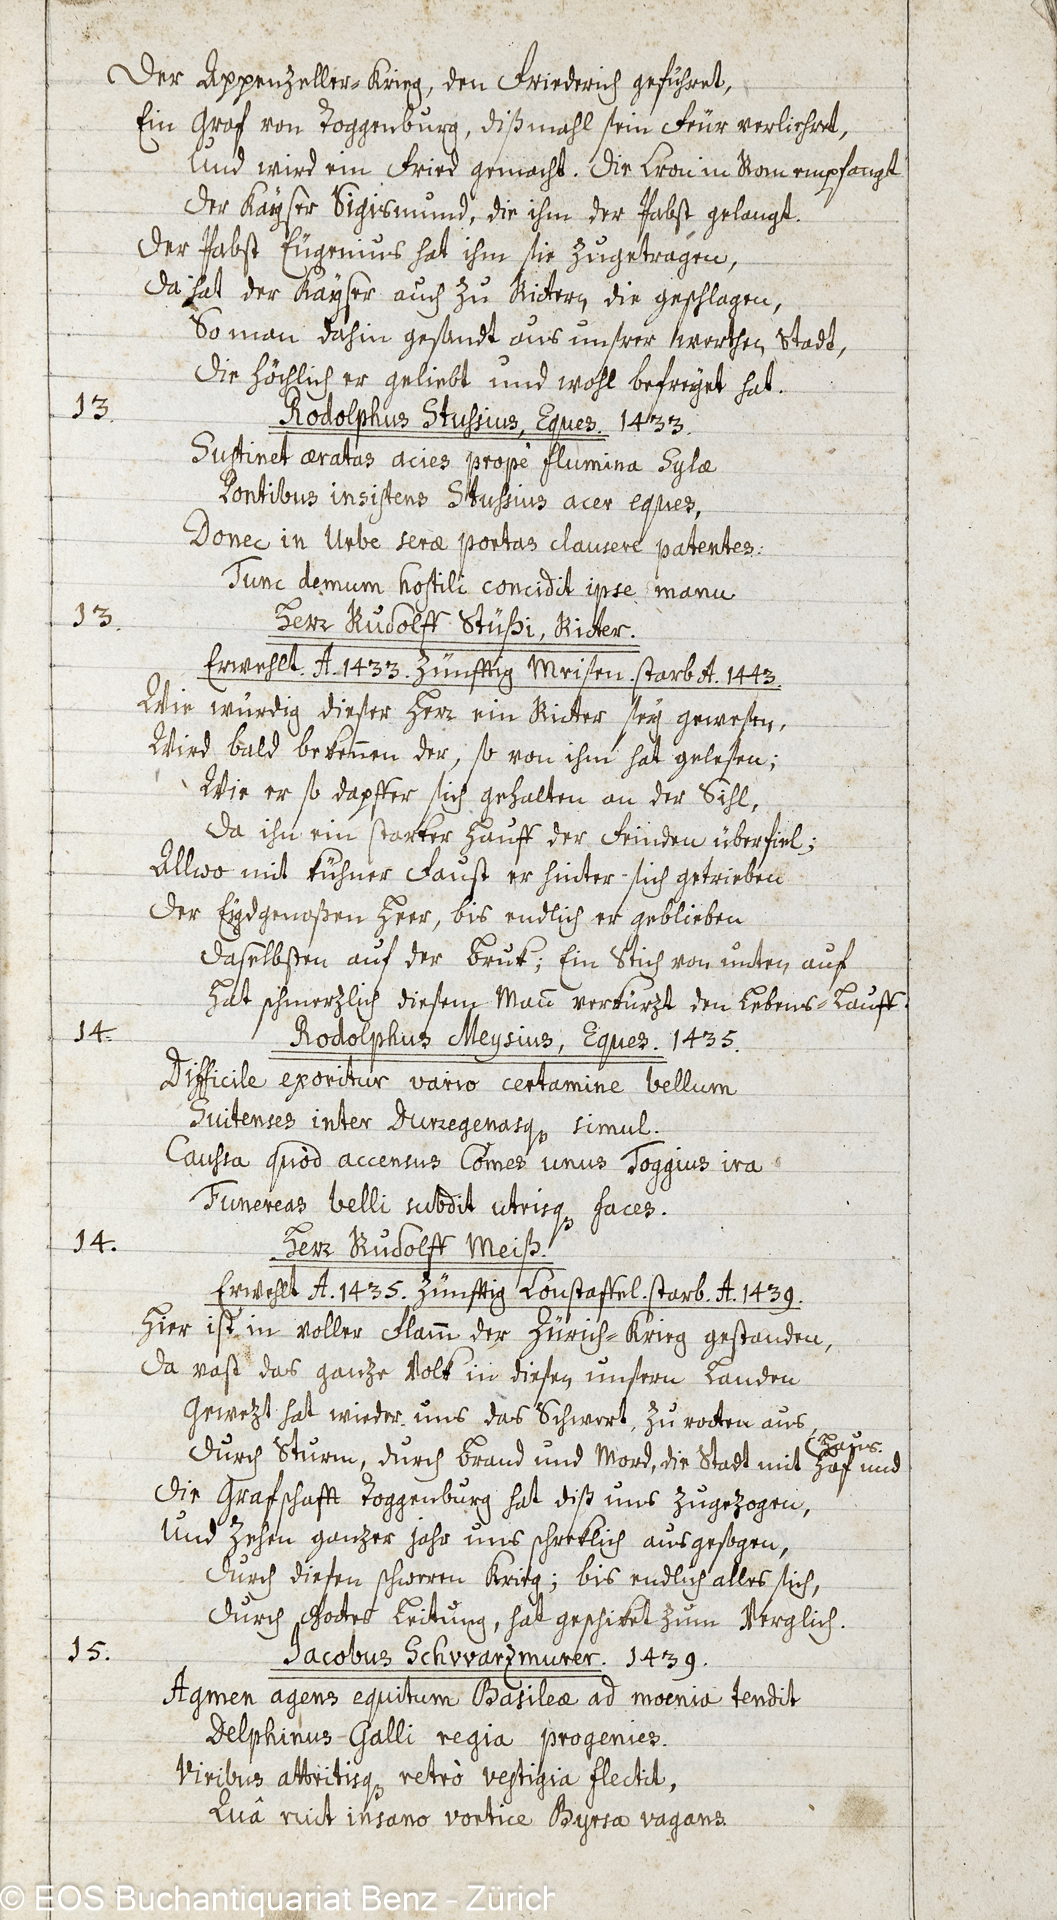 Der Appenzeller-Krieg, den Friederich geführet,
Ein Graf von Toggenburg, dißmahl sein Feür verliehret,
Und wird ein Fried gemacht. Die Cron in Rom empfangt
Der Kayser Sigismund, die ihm der Pabst gelangt.
Der Pabst Eügenius hat ihm sie zugetragen,
Da hat der Kayser auch zu Ritern die geschlagen,
So man dahin gesandt aus unsrer werthen Stadt,
Die höchlich er geliebt und wohl befreyet hat.
13. Rodolphus Stussius, Eques. 1433.
Sustinet æratas acies propè flumina Sylæ
Pontibus insistens Stussius acer eques,
Donec in Urbe seræ portas clausere patentes:
Tunc demum hostili concidit ipse manu
13. Herr Rudolff Stüßi, Ritter.
Erwehlt. A. 1433. Zünfftig Meisen. starb A. 1443.
Wie würdig dieser Herr ein Ritter sey gewesen,
Wird bald bekeñen der, so von ihm hat gelesen;
Wie er so dapffer sich gehalten an der Sihl,
Da ihn ein starker Hauff der Feinden überfiel;
Allwo mit kühner Faust er hinter sich getrieben
Der Eydgenoßen Heer, bis endlich er geblieben
Daselbsten auf der Bruk; Ein Stich von unten auf
Hat schmerzlich diesem Mañ verkürzt den Lebens-Lauff.
14. Rodolphus Meysius, Eques. 1435.
Difficile exoritur vario certamine bellum
Suitenses inter Durregenasq₃ simul.
Caussa quòd accensus Comes unus Toggius ira
Funereas belli subdit utrisq₃ faces.
14. Herr Rudolff Meiß.
Erwehlt A. 1435. Zünfftig Constaffel. starb. A. 1439.
Hier ist in voller Flam̃ der Zürich-Krieg gestanden,
Da vast das ganze Volk in diesen unsern Landen
Gewezt hat wieder uns das Schwert, zu rotten aus
Durch Sturm, durch Brand und Mord, die Stadt mit Hof und
(Haus.
Die Grafschafft Toggenburg hat diß uns zugezogen,
Und Zehen ganzer jahr uns schreklich ausgesogen,
Durch diesen schweren Krieg; bis endlich alles sich,
Durch Gottes Leitung, hat geschiket zum Verglich.
15. Jacobus Schvvarzmurer. 1439.
Agmen agens equitum Basileæ ad moenia tendit
Delphinus Galli regia progenies.
Viribus attritisq₃ retrò vestigia flectit,
Quâ ruit insano vortice Byrsa vagans.
© EOS Buchantiquariat Benz - Zürich